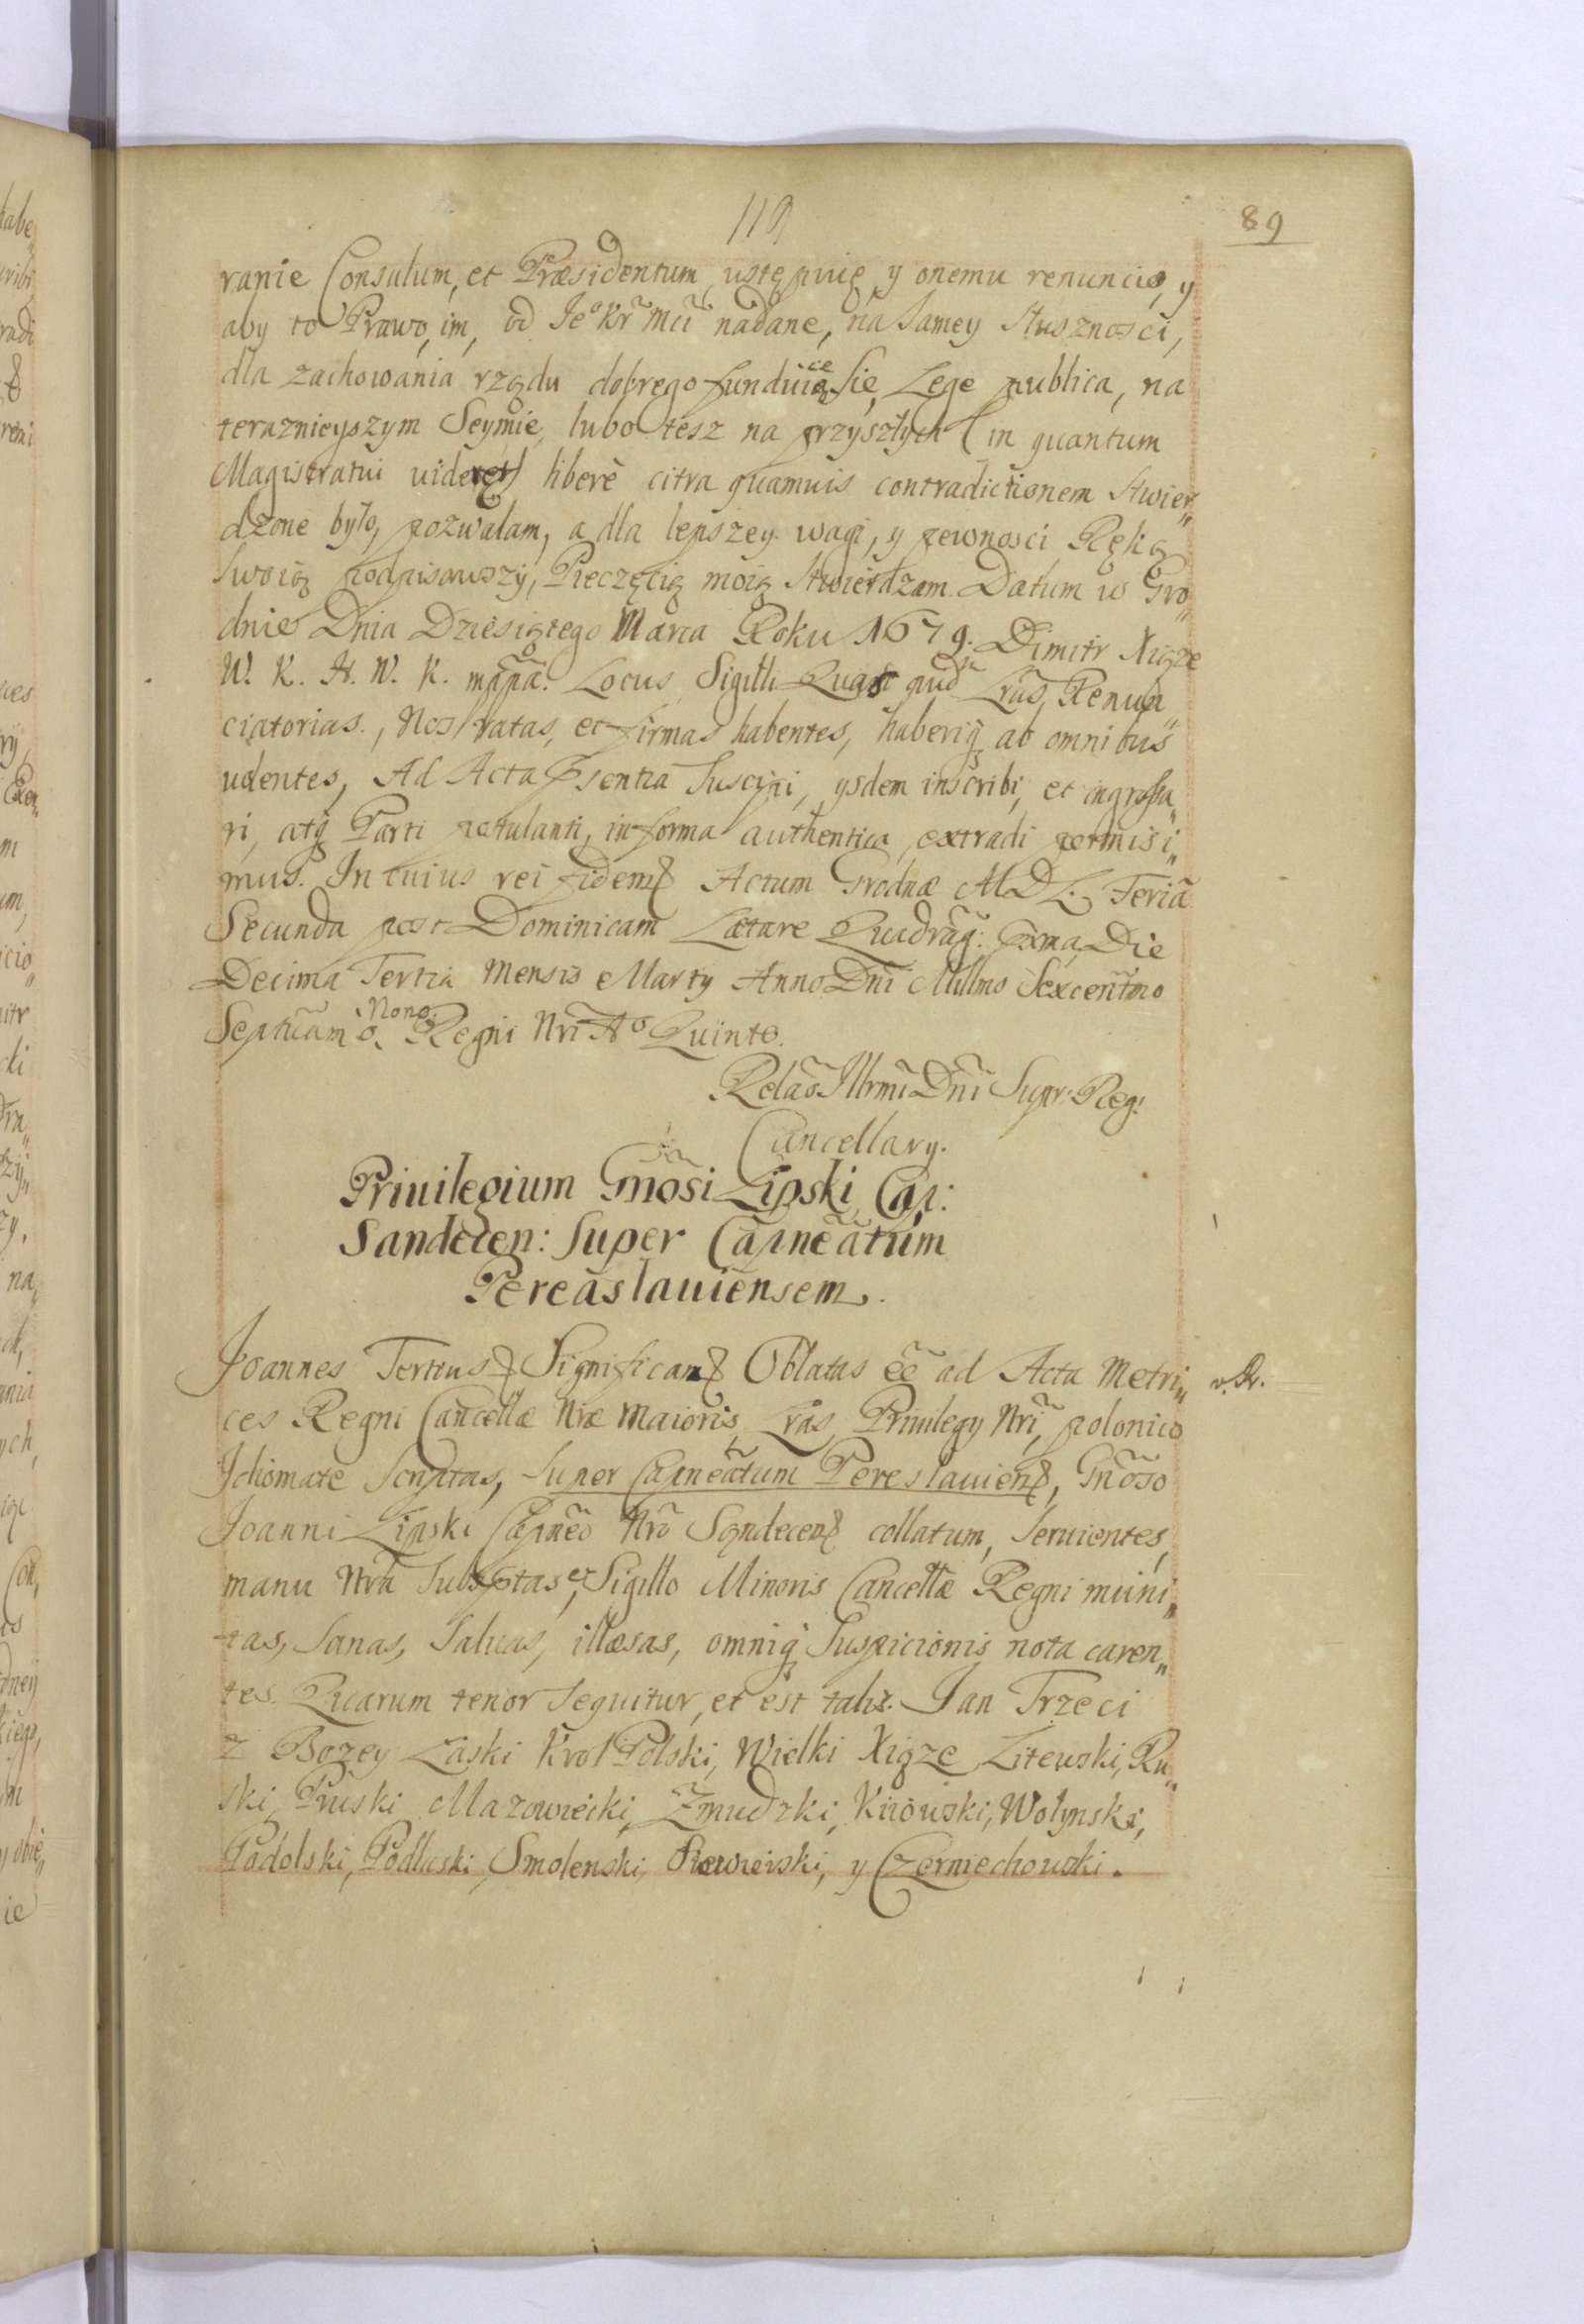 119
89
ranie Consulum, et Præsidentum, ustępuię y onemu renuncię, y
aby to Prawo, im, od Je° Kr Mći nadane, na samey słusznosci,
dla zachowania rządu dobrego funduiące się, Lege publica, na
teraznieyszym Seymie, lubo tesz na przyszłych (in quantum
Magistratui uideret) liberè citra quamuis contradictionem stwier„
dzone było, pozwalam, a dla lepszey wagi, y pewnosci Ręką
swoią podpisawszy, Pieczęcią moią stwierdzam. Datum w Gro„
dnie Dnia Dziesiątego Marca Roku 1679. Dimitr Xiąze
W. K. H. W. K. mppa. Locus Sigilli Quas quid Lras Renun„
ciatorias, Nos ratas, et firmas habentes, haberiq ab omnibus
uolentes, Ad Acta pntia suscipi, ysdem inscribi, et ingrossa„
ri, atq Parti petulanti, in forma authentica, extradi permisi„
mus. In cuius rei fidem Actum Grodnæ MDL. Feria
Secunda post Dominicam Lætare Quadrag: pxma, Die
Decima Tertia Mensis Marty Anno Dni Millmo Sexcentmo
Septuam° Nono. Regni Nri A° Quinto.
Relao Illrmi Dni Supr: Reg:
Cancellary.
Priuilegium Gnosi Lipski Cap:
Sandecen: super Capneatum
Pereaslauiensem.
Joannes Tertius Significam Oblatas eē ad Acta Metri„
ces Regni Cancellæ Nræ Maioris, Lras Priuilegy Nri, polonico
Idiomate scriptas, super Capneatum Pereslauien, Gnoso
Joanni Lipski Capneo Nro Sandecen collatum, seruientes,
manu Nra Subsptas, et Sigillo Minoris Cancellæ Regni muni„
tas, sanas, saluas, illæsas, omniq suspicionis nota caren„
tes. Quarum tenor sequitur, et est talis. Jan Trzeci
z Bozey Łaski Krol Polski, Wielki Xiąze Litewski, Ru„
ski, Pruski, Mazowiecki, Zmudzki, Kiiowski, Wołynski,
Podolski, Podlaski, Smolenski, Siewierski, y Czerniechowski.